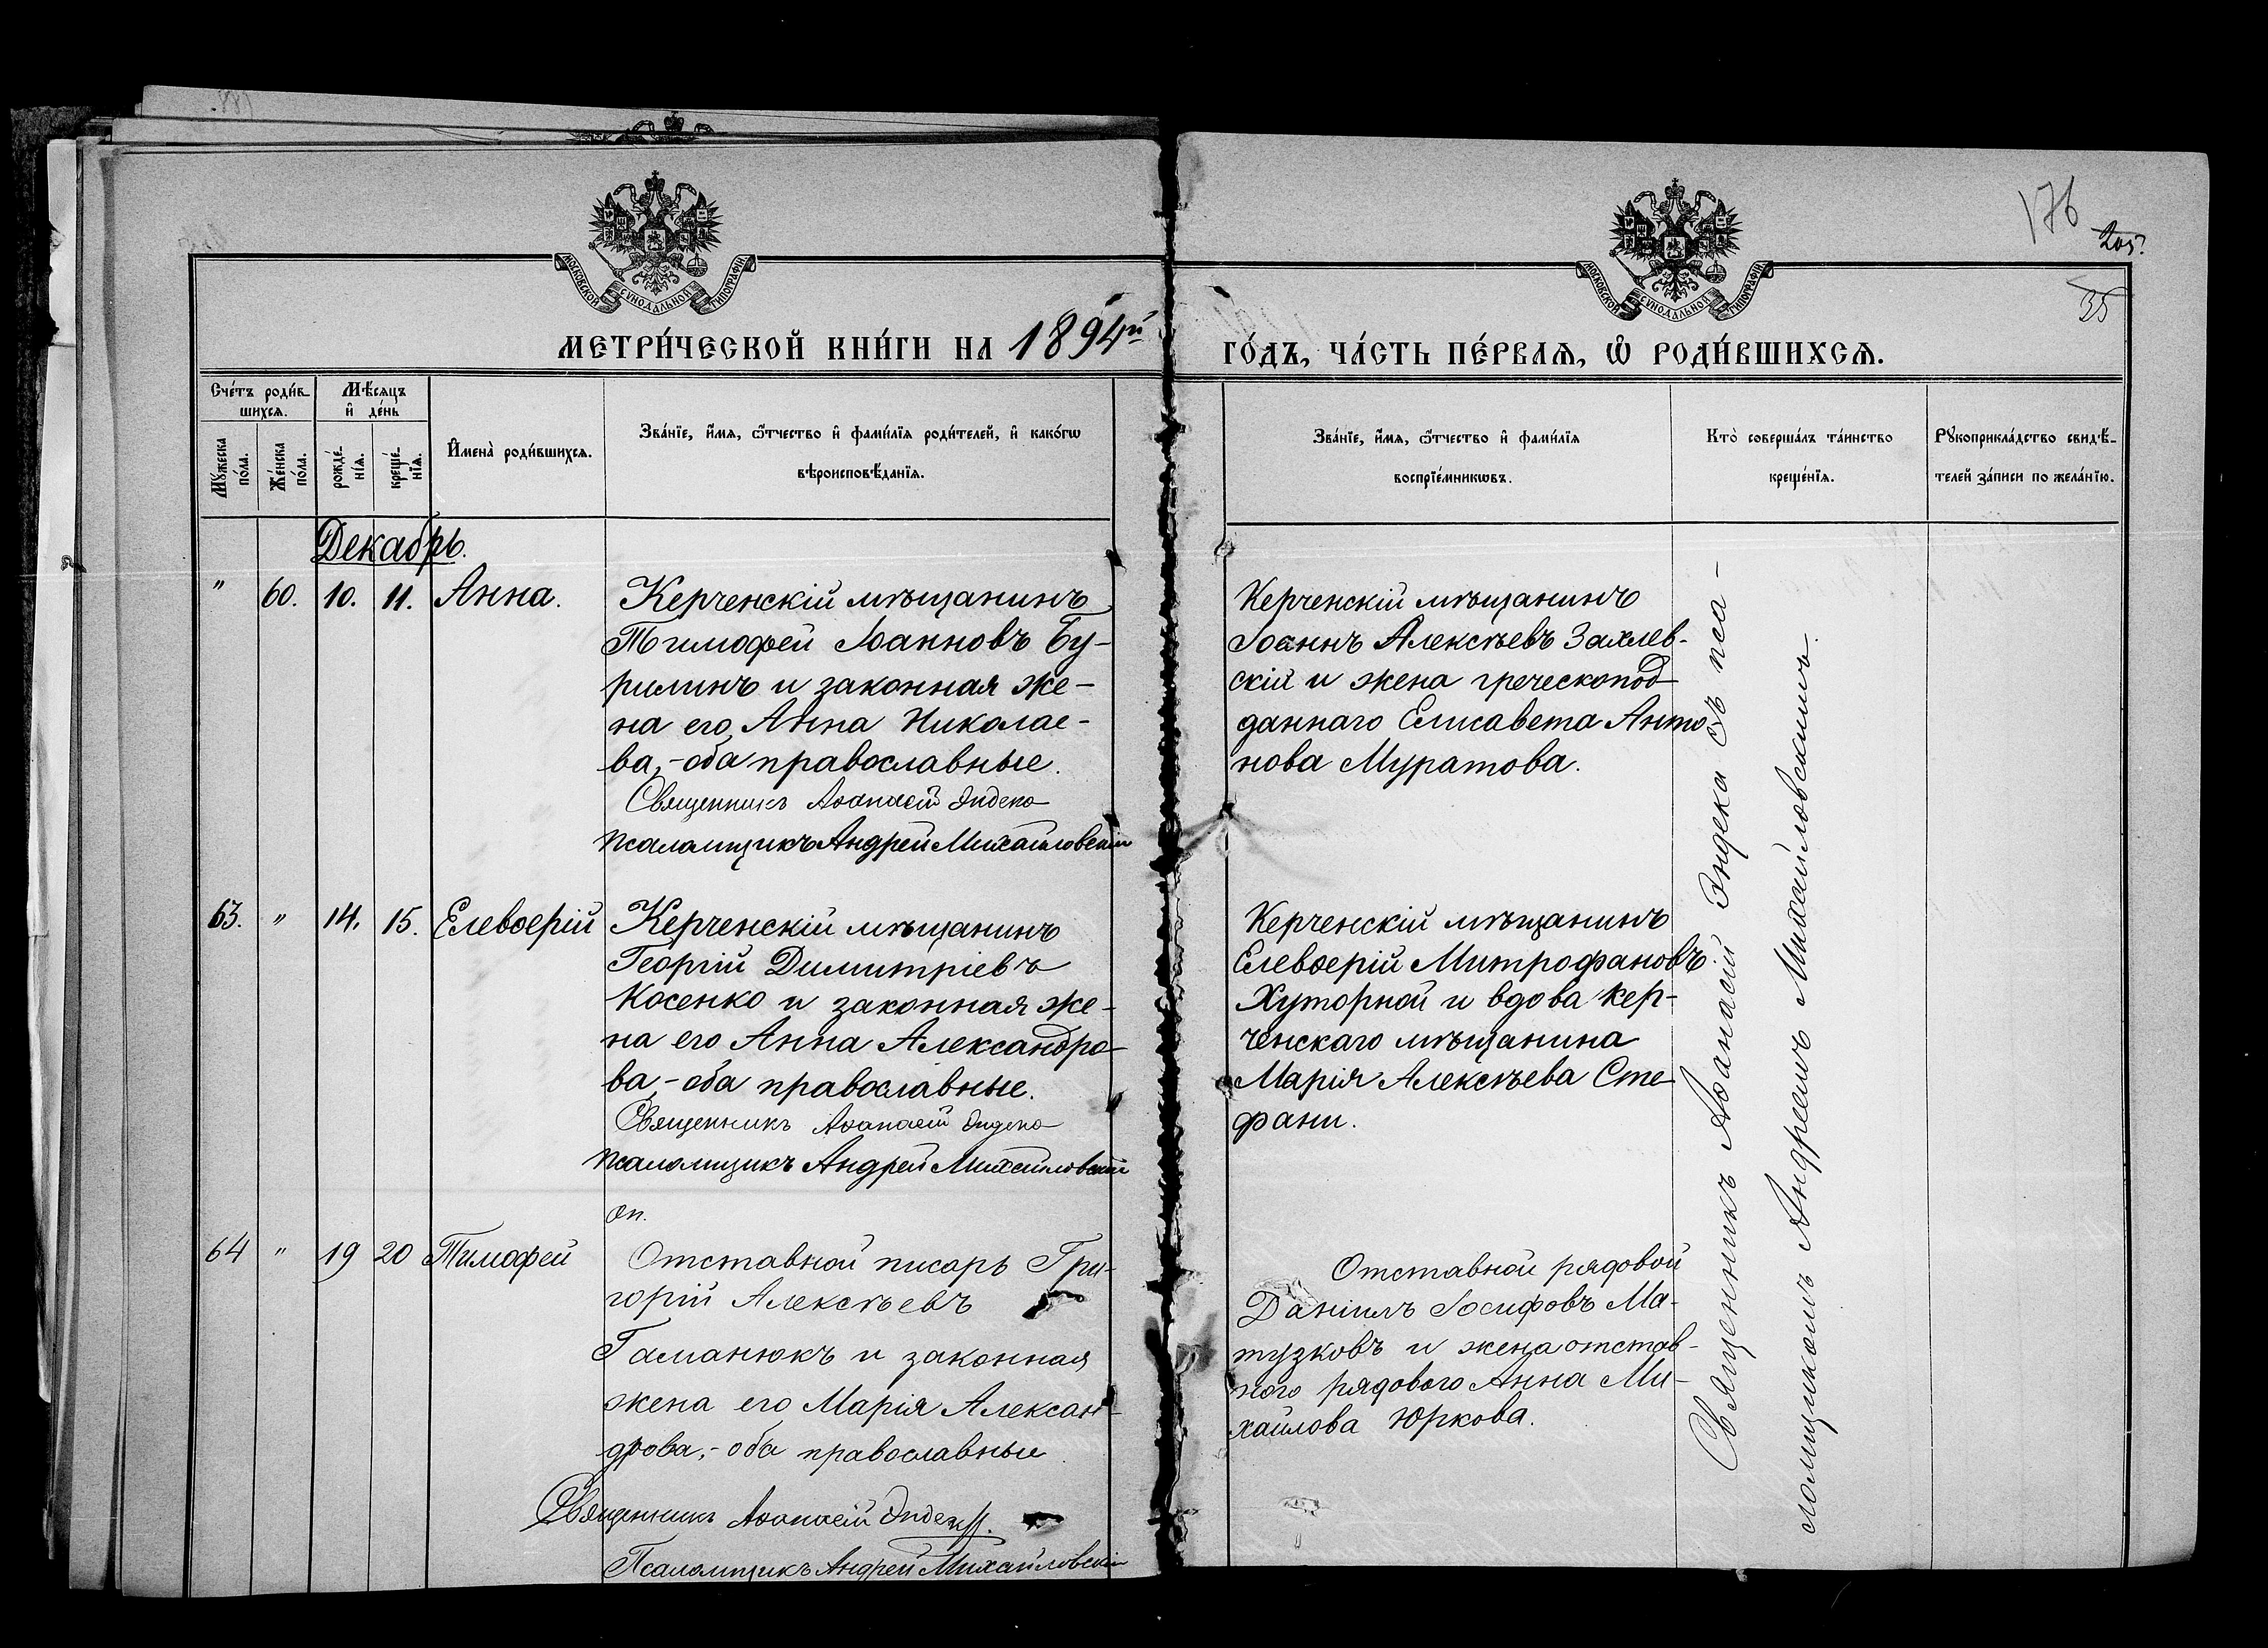 176
205.
35
МОСКОВСКОЙ СѴНОДАЛЬНОЙ ТИПОГРАФІИ
МОСКОВСКОЙ СѴНОДАЛЬНОЙ ТИПОГРАФІИ
МЕТРИ́ЧЕСКОЙ КНИ́ГИ НА 1894й ГО́ДЪ, ЧА́СТЬ ПЕ́РВАѦ, Ѡ҆ РОДИ́ВШИХСѦ.
Сче́тъ роди́в-
шихсѧ.
Мѣ́сѧцъ
и҆ де́нь
Мꙋ́жеска
по́ла.
Же́нска
по́ла.
рожде́-
нїѧ.
креще́-
нїѧ.
И҆мена̀ роди́вшихсѧ.
Зва́нїе, и҆́мѧ, ѻ҆́тчество и҆ фами́лїѧ роди́телей, и҆ како́гѡ
вѣроисповѣ́данїѧ.
Зва́нїе, и҆́мѧ, ѻ҆́тчество и҆ фами́лїѧ
воспрїе́мникѡвъ.
Кто̀ соверша́лъ та́инство
креще́нїѧ.
Рꙋкоприкла́дство свидѣ́-
телей за́писи по жела́нїю.
Декабрь.
" 60. 10. 11. Анна.
Керченскій мѣщанинъ
Тимофей Іоанновъ Бу-
рилинъ и законная же-
на его Анна Николае-
ва,-оба православные.
Священникъ Аѳанасій Эндека
Псаломщикъ Андрей Михайловскій
Керченскій мѣщанинъ
Іоаннъ Алексѣевъ Захлев-
скій и жена греческопод-
даннаго Елисавета Анто-
нова Муратова.
63. " 14. 15. Елевѳерій
Керченскій мѣщанинъ
Георгій Димитріевъ
Косенко и законная же-
на его Анна Александро-
ва,-оба православные.
Священникъ Аѳанасій Эндека
Псаломщикъ Андрей Михайловскій
Керченскій мѣщанинъ
Елевѳерій Митрофановъ
Хуторной и вдова кер-
ченскаго мѣщанина
Марія Алексѣева Сте-
фани.
64 " 19 20 Тимофей
Отставной писарь Гри-
горій Алексѣевъ
Гаманюкъ и законная
жена его Марія Алексан-
дрова,-оба православные
Священникъ Аѳанасій Эндека.
Псаломщикъ Андрей Михайловскій
Отставной рядовой
Даніилъ Іосифовъ Ма-
тузковъ и жена отстав-
ного рядового Анна Ми-
хайлова Юркова.
Священникъ Аѳанасій Эндека съ пса-
ломщикомъ Андреемъ Михайловскимъ.